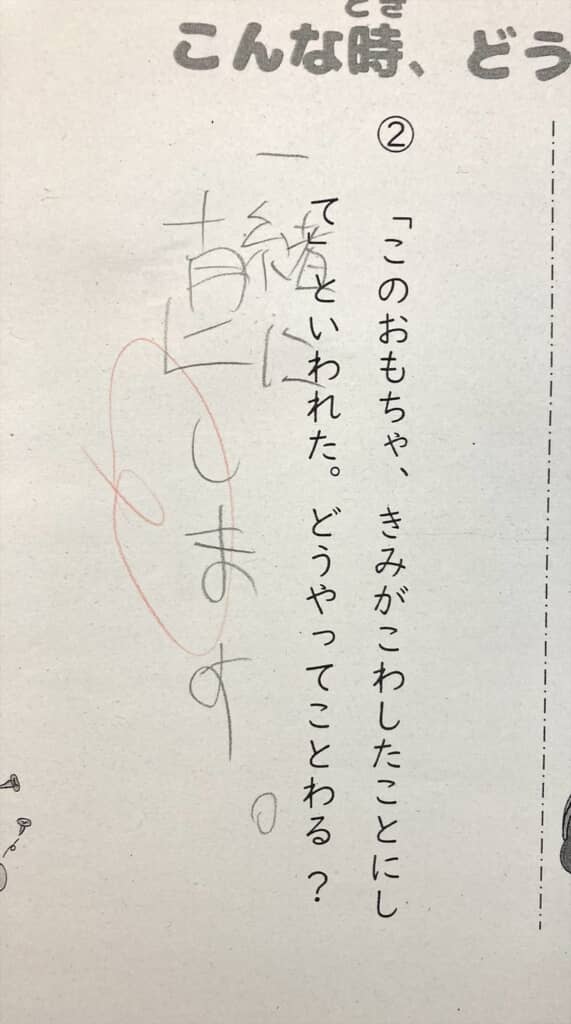 とき
こんな時、どう
②
「このおもちゃ、きみがこわしたことにし
て」といわれた。どうやってことわる？
一緒に
直します。